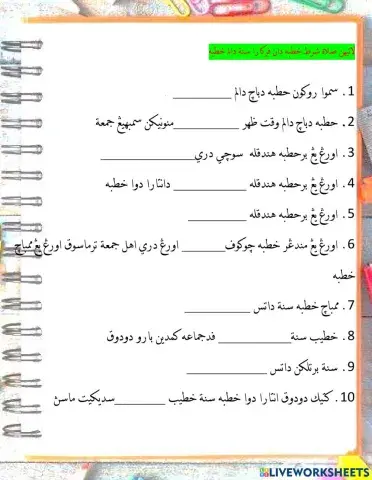 لاتيهن صلاة شرط خطبه دان ڤركارا سنة دالم خطبه
1. سموا روكون خطبه دباچ دالم ________
2. خطبه دباچ دالم وقت ظهر ________منونيكن سمبهيڠ جمعة
3. اورڠ يڠ برخطبه هندقله سوچي دري________
4. اورڠ يڠ برخطبه هندقله ________ دانتارا دوا خطبه
5. اورڠ يڠ برخطبه هندقله ________
6. اورڠ يڠ مندڠر خطبه چوكوف________ اورڠ دري اهل جمعة ترماسوق اورڠ يڠ ممباچ
خطبه
7. ممباچ خطبه سنة داتس ________
8. خطيب سنة________ فدجماعه كمدين بارو دودوق
9. سنة برتلكن داتس ________
10. كتيك دودوق انتارا دوا خطبه سنة خطيب ________سديكيت ماسڽ
LIVEWORKSHEETS